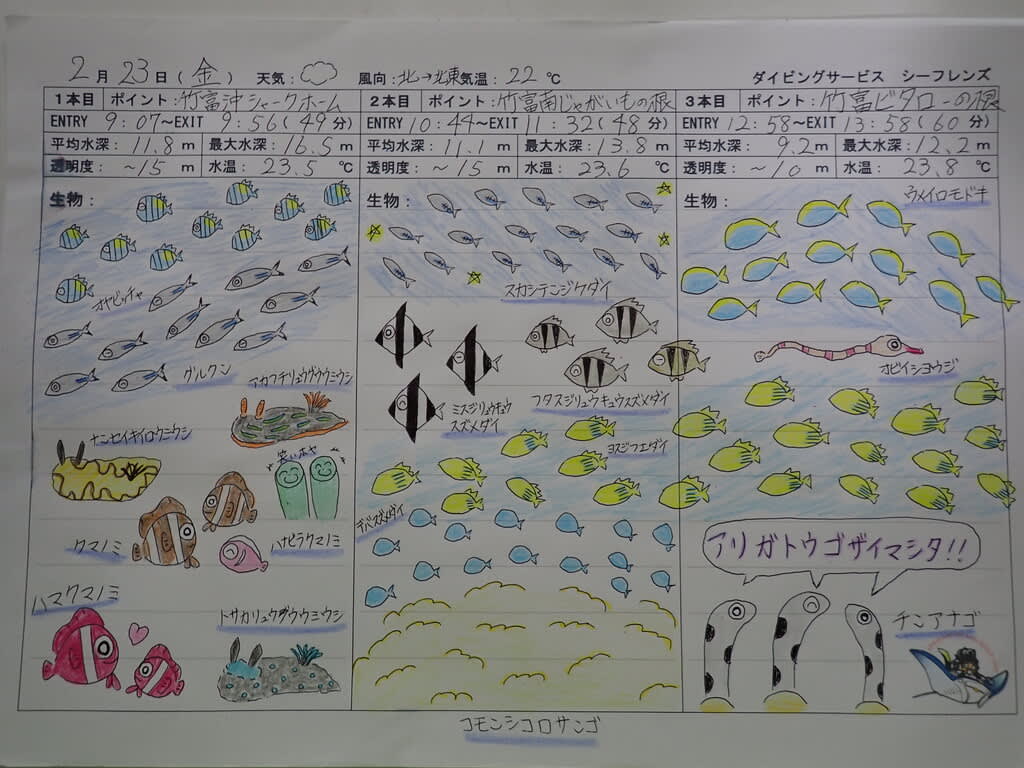 2月23日(金) 天気: 風向:北→北東 気温:22℃ ダイビングサービス シーフレンズ
1本目 ポイント:竹富沖シャークホーム
ENTRY 9:07~EXIT 9:56(49分)
平均水深:11.8m 最大水深:16.5m
透明度:~15m 水温:23.5℃
生物:
オヤビッチャ
グルクン
アカフチリュウグウウミウシ
ナンセイキイロウミウシ
笑いホヤ
クマノミ
ハナビラクマノミ
ハマクマノミ
トサカリュウグウウミウシ
2本目 ポイント:竹富南じゃがいもの根
ENTRY 10:44~EXIT 11:32(48分)
平均水深:11.1m 最大水深:13.8m
透明度:~15m 水温:23.6℃
生物:
スカシテンジクダイ
ミスジリュウキュウ
スズメダイ
フタスジリュウキュウスズメダイ
ヨスジフエダイ
デバスズメダイ
コモンシコロサンゴ
3本目 ポイント:竹富ビタローの根
ENTRY 12:58~EXIT 13:58(60分)
平均水深:9.2m 最大水深:12.2m
透明度:~10m 水温:23.8℃
生物:
ウメイロモドキ
オビイシヨウジ
アリガトウゴザイマシタ!!
チンアナゴ